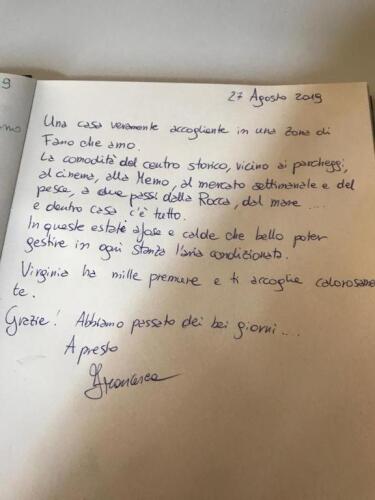 9
mo
27 Agosto 2019
Una casa veramente accogliente in una zona di
Fano che amo.
La comodità del centro storico, vicino ai parcheggi,
al cinema, alla Memo, al mercato settimanale e del
pesce, a due passi dalla Rocca, dal mare ....
e dentro casa c'è tutto.
In queste estati afose e calde che bello poter
gestire in ogni stanza l'aria condizionata.
Virginia ha mille premure e ti accoglie calorosame
te.
Grazie! Abbiamo passato dei bei giorni ....
A presto
Francesca